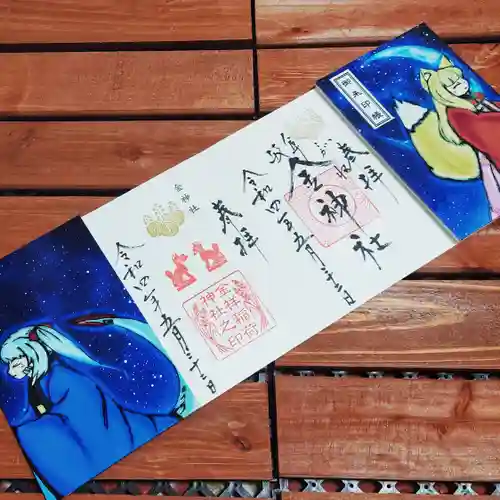 御朱印帳
奉拝
金神社
令和四年五月二十二日
金神社
奉拝
金祥稲荷
神社之印
令和四年五月二十二日